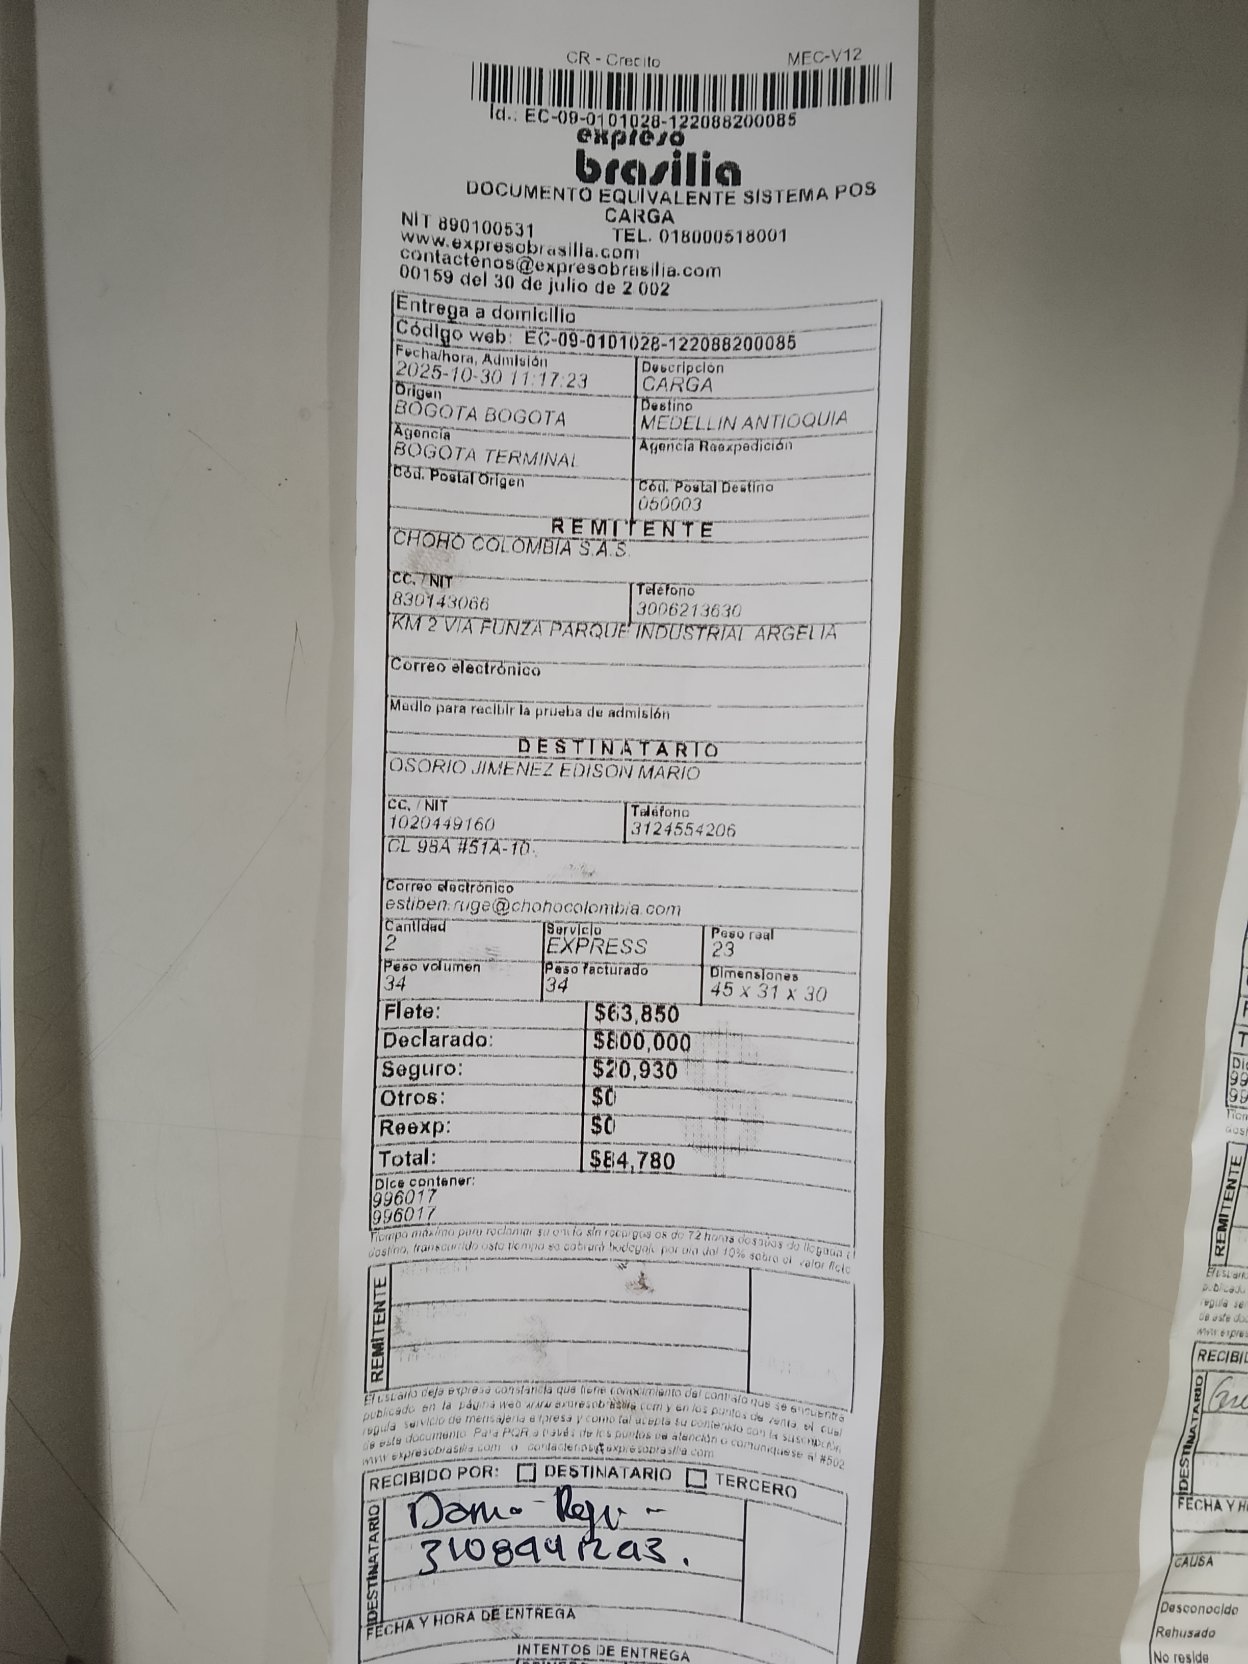 CR - Credito MEC-V12
Id.: EC-09-0101028-122088200085
expreso
brasilia
DOCUMENTO EQUIVALENTE SISTEMA POS
CARGA
NIT 890100531 TEL. 018000518001
www.expresobrasilia.com
contactenos@expresobrasilia.com
00159 del 30 de julio de 2 002
Entrega a domicilio
Código web: EC-09-0101028-122088200085
Fecha/hora, Admisión Descripción
2025-10-30 11:17:23 CARGA
Origen Destino
BOGOTA BOGOTA MEDELLIN ANTIOQUIA
Agencia Agencia Reexpedición
BOGOTA TERMINAL
Cód. Postal Origen Cód. Postal Destino
050003
REMITENTE
CHOHO COLOMBIA S.A.S.
CC. / NIT Teléfono
830143066 3006213630
KM 2 VIA FUNZA PARQUE INDUSTRIAL ARGELIA
Correo electrónico
Medio para recibir la prueba de admisión
DESTINATARIO
OSORIO JIMENEZ EDISON MARIO
CC. / NIT Teléfono
1020449160 3124554206
CL 98A #51A-10
Correo electrónico
estiben.ruge@chohocolombia.com
Cantidad Servicio Peso real
2 EXPRESS 23
Peso volumen Peso facturado Dimensiones
34 34 45 x 31 x 30
Flete: $63,850
Declarado: $800,000
Seguro: $20,930
Otros: $0
Reexp: $0
Total: $84,780
Dice contener:
996017
996017
Tiempo máximo para reclamar su envío sin recargos es de 72 horas después de llegada al
destino, transcurrido este tiempo se cobrará bodegaje por día del 10% sobre el valor flete
REMITENTE
El usuario deja expresa constancia que tiene conocimiento del contrato que se encuentra
publicado en la página web www.expresobrasilia.com y en los puntos de venta, el cual
regula servicio de mensajería expresa y como tal acepta su contenido con la suscripción
de este documento. Para PQR a través de los puntos de atención o comuníquese al #502
www.expresobrasilia.com o contactenos@expresobrasilia.com
RECIBIDO POR: DESTINATARIO TERCERO
DESTINATARIO
FECHA Y HORA DE ENTREGA
INTENTOS DE ENTREGA
REMITENTE
RECIBI
DESTINATARIO
FECHA Y H
CAUSA
Desconocido
Rehusado
No reside